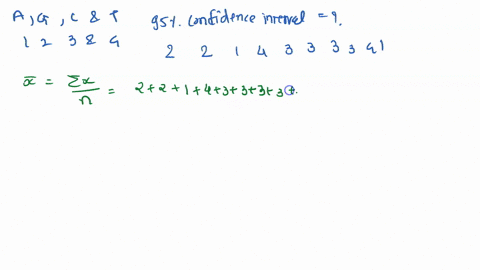 A, G, C & T
1 2 3 & 4
95%. confidence interval = ?.
2 2 1 4 3 3 3 3 4 1
x̄ = Σx / n = 2+2+1+4+3+3+3+3+